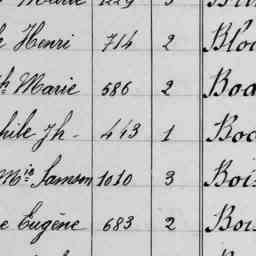 Marie 1229 3
Henri 714 2 Blo
Marie 586 2 Boa
phile Jh - 443 1 Boc
Mie Samson 1010 3 Bois
e Eugène 683 2 Bois